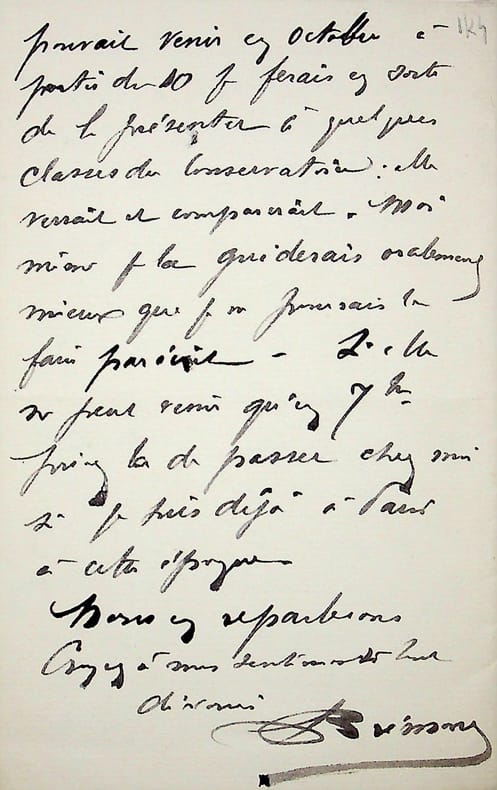 pouvait venir en octobre à
partir du 10 je ferais en sorte
de la présenter à quelques
classes du Conservatoire. elle
verrait et comparerait. Moi
même je la guiderais oralement
mieux que je ne pourrais le
faire par écrit – Si elle
ne peut venir qu'en 7bre
priez la de passer chez moi
si je suis déjà à Paris
à cette époque
Nous en reparlerons
Croyez à mes sentiments tout
dévoués